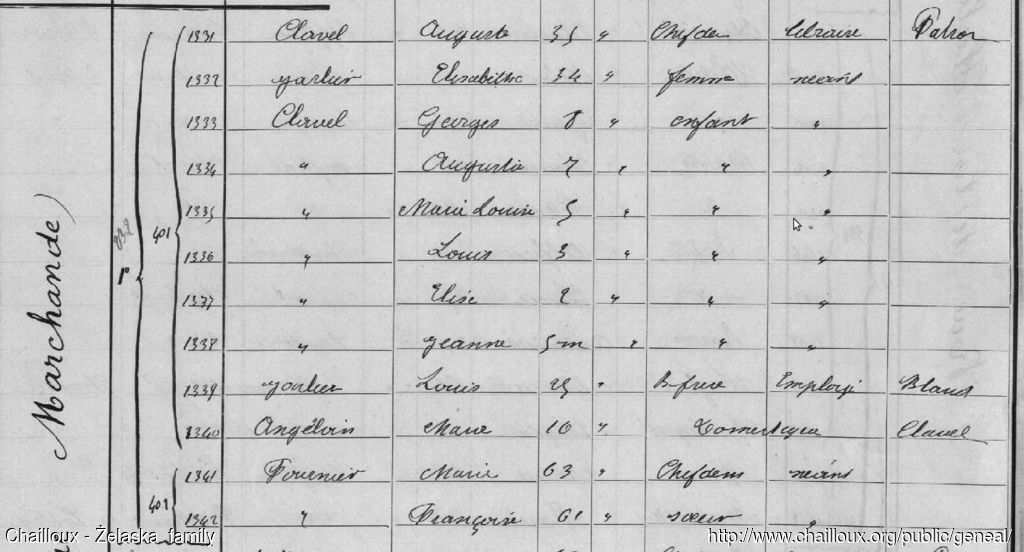 1331 Clavel Auguste 35 " Chef de libraire Patron
1332 Elisabeth 34 " femme néant
1333 Clavel Georges 8 " enfant "
1334 " Augusta 7 " " "
1335 " Marie Louise 5 " " "
1336 " Louis 3 " " "
1337 " Elise 2 " " "
1338 " Jeanne 5 m " " "
1339 Louis " B-frère Employé
1340 Marie 16 " Domestique Clavel
1341 Fournier Marie 63 " néant
1342 " Françoise 61 " soeur "
Marchande)
401
402
Chailloux - Żelaska family
http://www.chailloux.org/public/geneal/